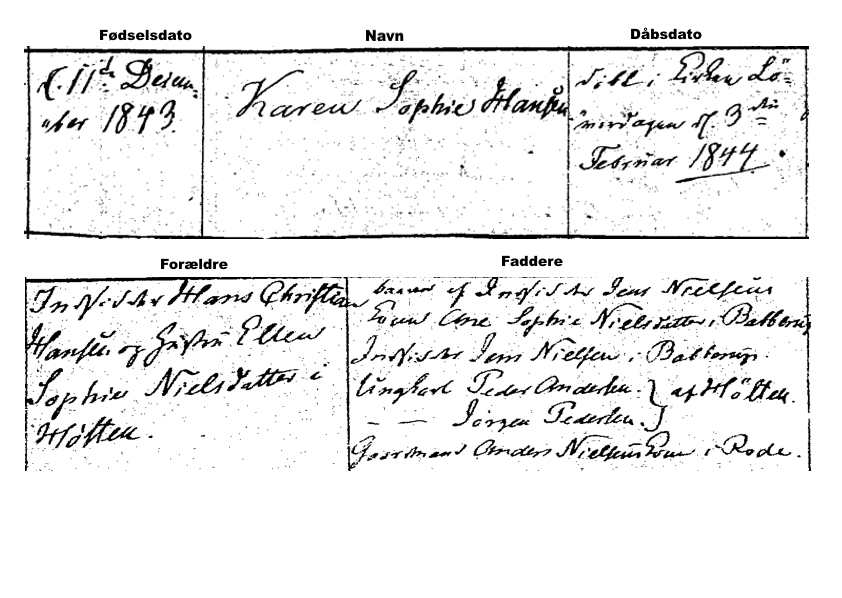 Fødselsdato Navn Dåbsdato
d. 11te Decem-
ber 1843.
Karen Sophie Hansen
døbt i Kirken Lö-
verdagen d. 3die
Februar 1844.
Forældre Faddere
Indsidder Hans Christian
Hansen og Hustru Ellen
Sophie Nielsdatter i
Höften.
baaren af Indsidder Jens Nielsens
Kone Ane Sophie Nielsdatter i Babberup
Indsidder Jens Nielsen i Babberup
Ungkarl Peder Andersen. } af Höften.
— — Jörgen Pedersen. }
Gaardmand Anders Nielsens Kone i Rode.